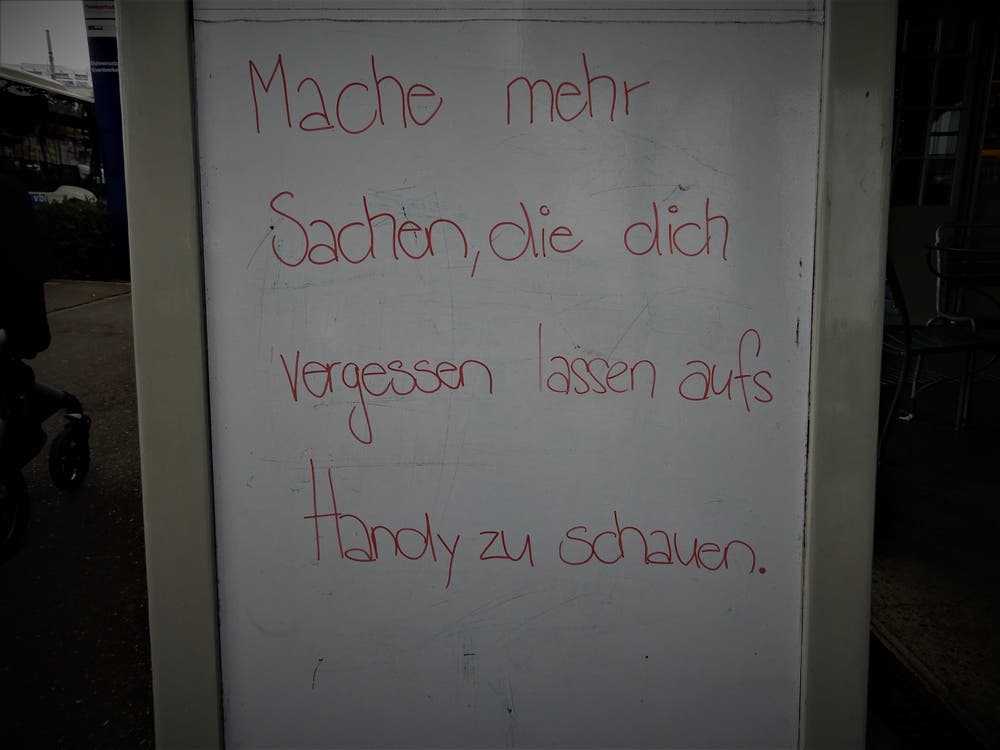 Mache mehr
Sachen, die dich
vergessen lassen aufs
Handy zu schauen.